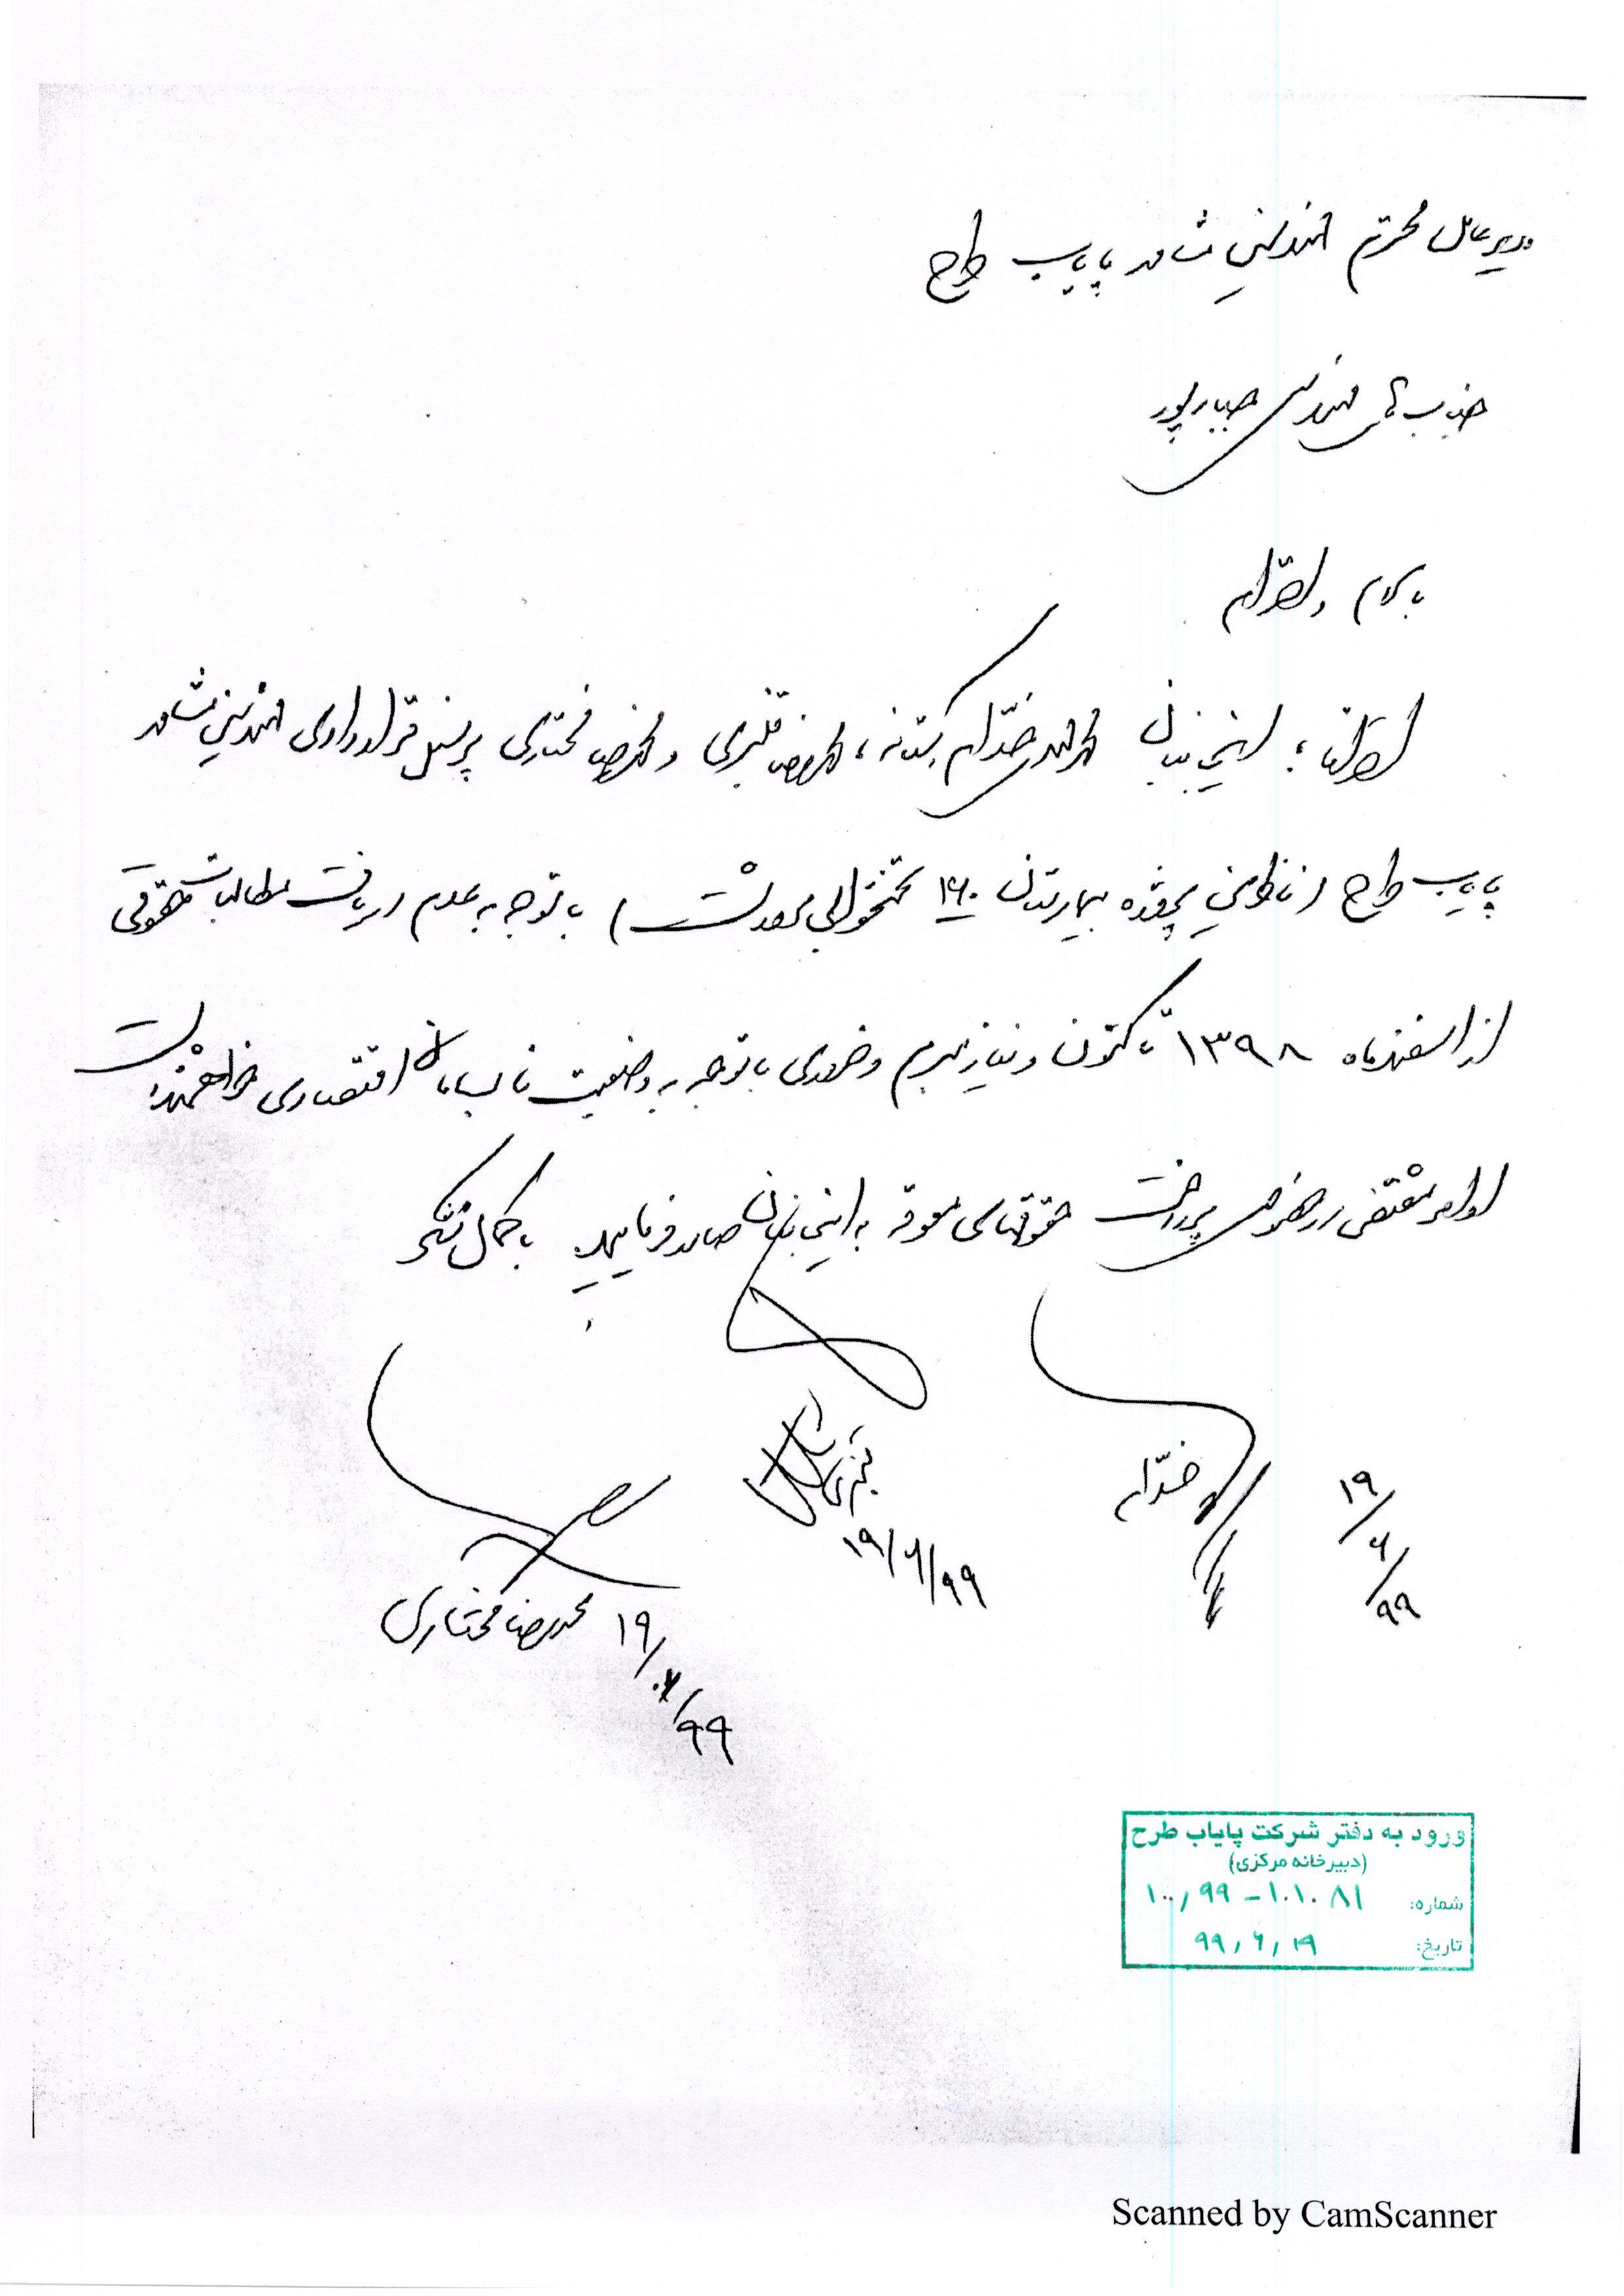 مدیر عامل محترم مهندسین مشاور پایاب طرح
جناب آقای مهندس جبارپور
با سلام و احترام
احتراماً؛ اینجانبان محمدامین خدّام بستانه، محمدرضا قنبری و محمدرضا مختاری پرسنل قراردادی مهندسین مشاور
پایاب طرح (ناظرین پروژه بیمارستان ۱۶۰ تختخوابی مرودشت) با توجه به عدم دریافت مطالبات حقوقی
از اسفندماه ۱۳۹۸ تا کنون و نیاز مبرم و ضروری با توجه به وضعیت نابسامان اقتصادی خواهشمند است
اوامر مقتضی در خصوص پرداخت حقوقهای معوقه به اینجانبان صادر فرمایید. با کمال تشکر
خدّام ۱۹/۶/۹۹
قنبری ۱۹/۶/۹۹
محمدرضا مختاری ۱۹/۰۶/۹۹
ورود به دفتر شرکت پایاب طرح
(دبیرخانه مرکزی)
شماره: ۱۰۰/۹۹-۱۰۱۰۸۱
تاریخ: ۹۹/۶/۱۹
Scanned by CamScanner